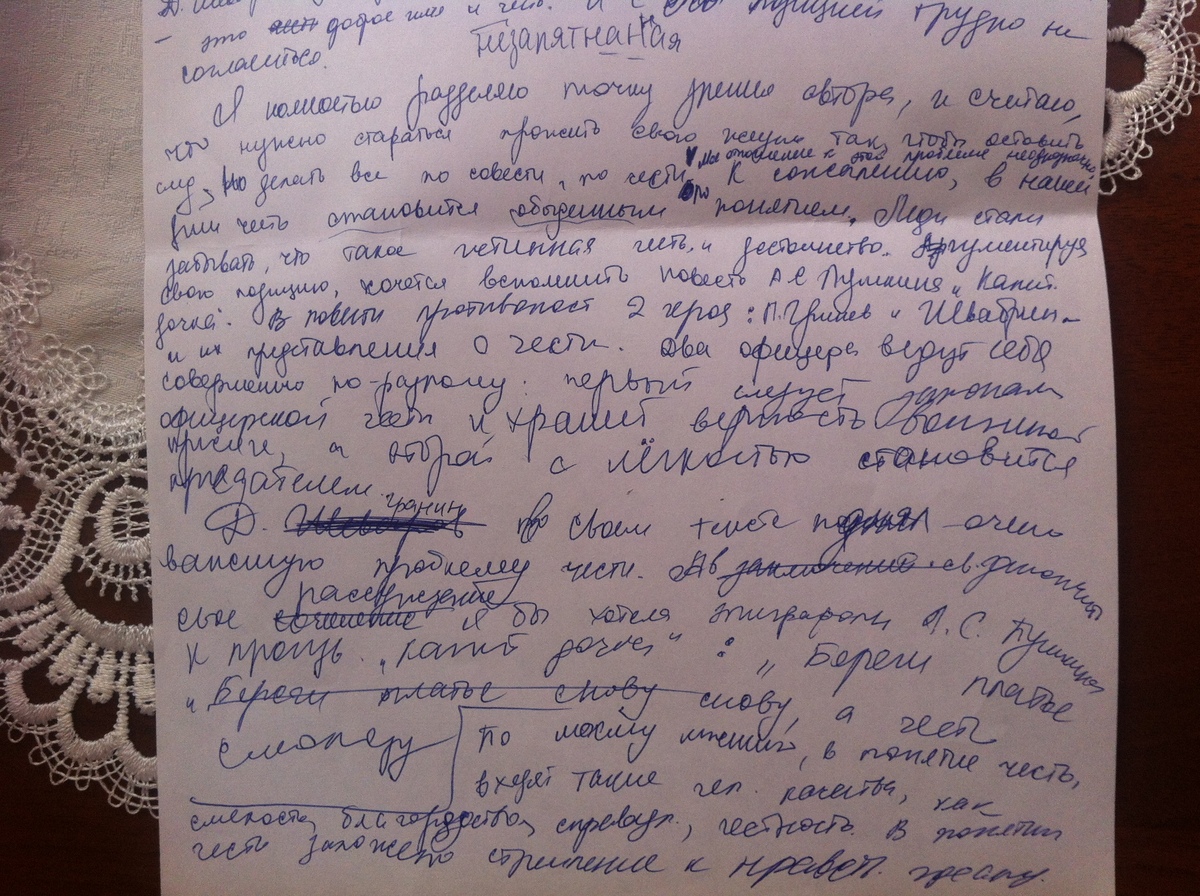 Д.
– это доброе имя и честь. И с его позицией трудно не
согласиться.
Незапятнанная
Я полностью разделяю точку зрения автора, и считаю,
что нужно стараться прожить свою жизнь так, чтобы оставить
след, делать все по совести, по чести. К сожалению, в наши
Мое отношение к этой проблеме неоднозначно,
дни честь становится обыденным понятием. Люди стали
забывать, что такое истинная честь и достоинство. Аргументируя
свою позицию, хочется вспомнить повесть А С Пушкина „ Капит.
дочка. В повести противопост 2 героя: П.Гринев и Швабрин –
и их представления о чести. Два офицера ведут себя
совершенно по-разному: первый следует законам
офицерской чести и хранит верность военной
присяге, а второй с лёгкостью становится
предателем.
Д. Гранин в своем тексте поднял очень
важную проблему чести. заключение закончить
рассуждение
свое сочинение я бы хотела эпиграфом А.С. Пушкина
к произв. „Капит дочка“ : „ Береги платье
„ Береги платье снову снову, а честь
смолоду По моему мнению, в понятие честь,
входят такие чел. качества, как
смелость, благородство, справедл., честность. В понятии
честь заложено стремление к нравст. идеалу.